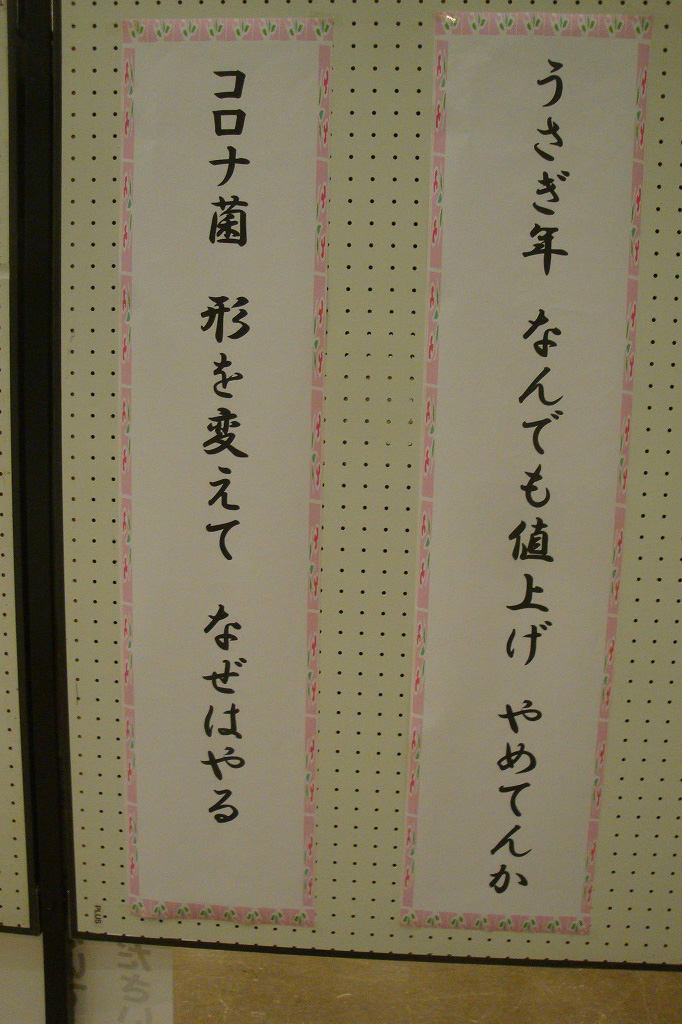 うさぎ年 なんでも値上げ やめてんか
コロナ菌 形を変えて なぜはやる
PLUS
ださい